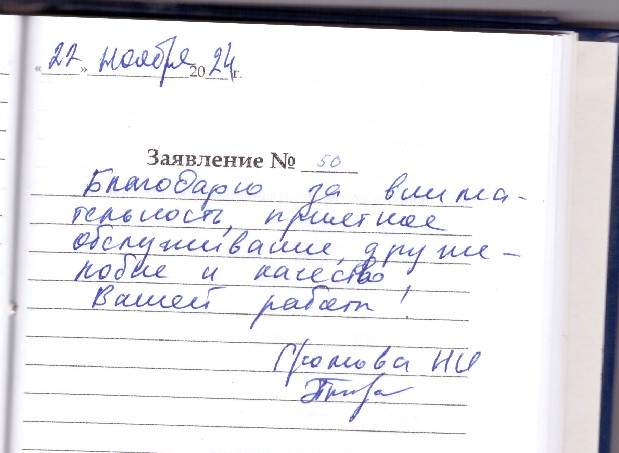 «22» ноября 2024 г.
Заявление № 50
Благодарю за внима-
тельность, приятное
обслуживание, друже-
любие и качество
Вашей работы!
Громова НИ